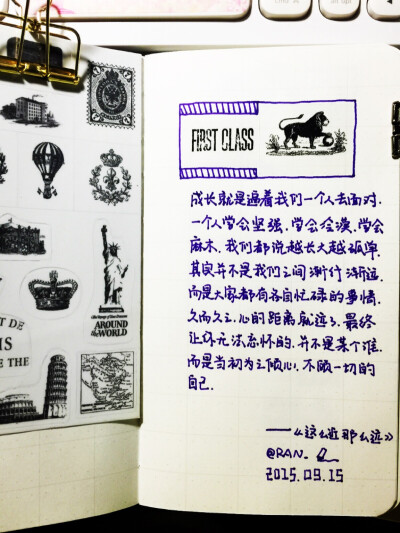 FIRST CLASS
成长就是逼着我们一个人去面对.
一个人学会坚强.学会冷漠.学会
麻木.我们都说越长大越孤单.
其实并不是我们之间渐行渐远.
而是大家都有各自忙碌的事情.
久而久之.心的距离就远了.最终
让你无法忘怀的.并不是某个谁.
而是当初为之倾心.不顾一切的
自己.
——《这么近那么远》
@RAN.
2015.09.15
AROUND
the WORLD
T DE
IS
E THE